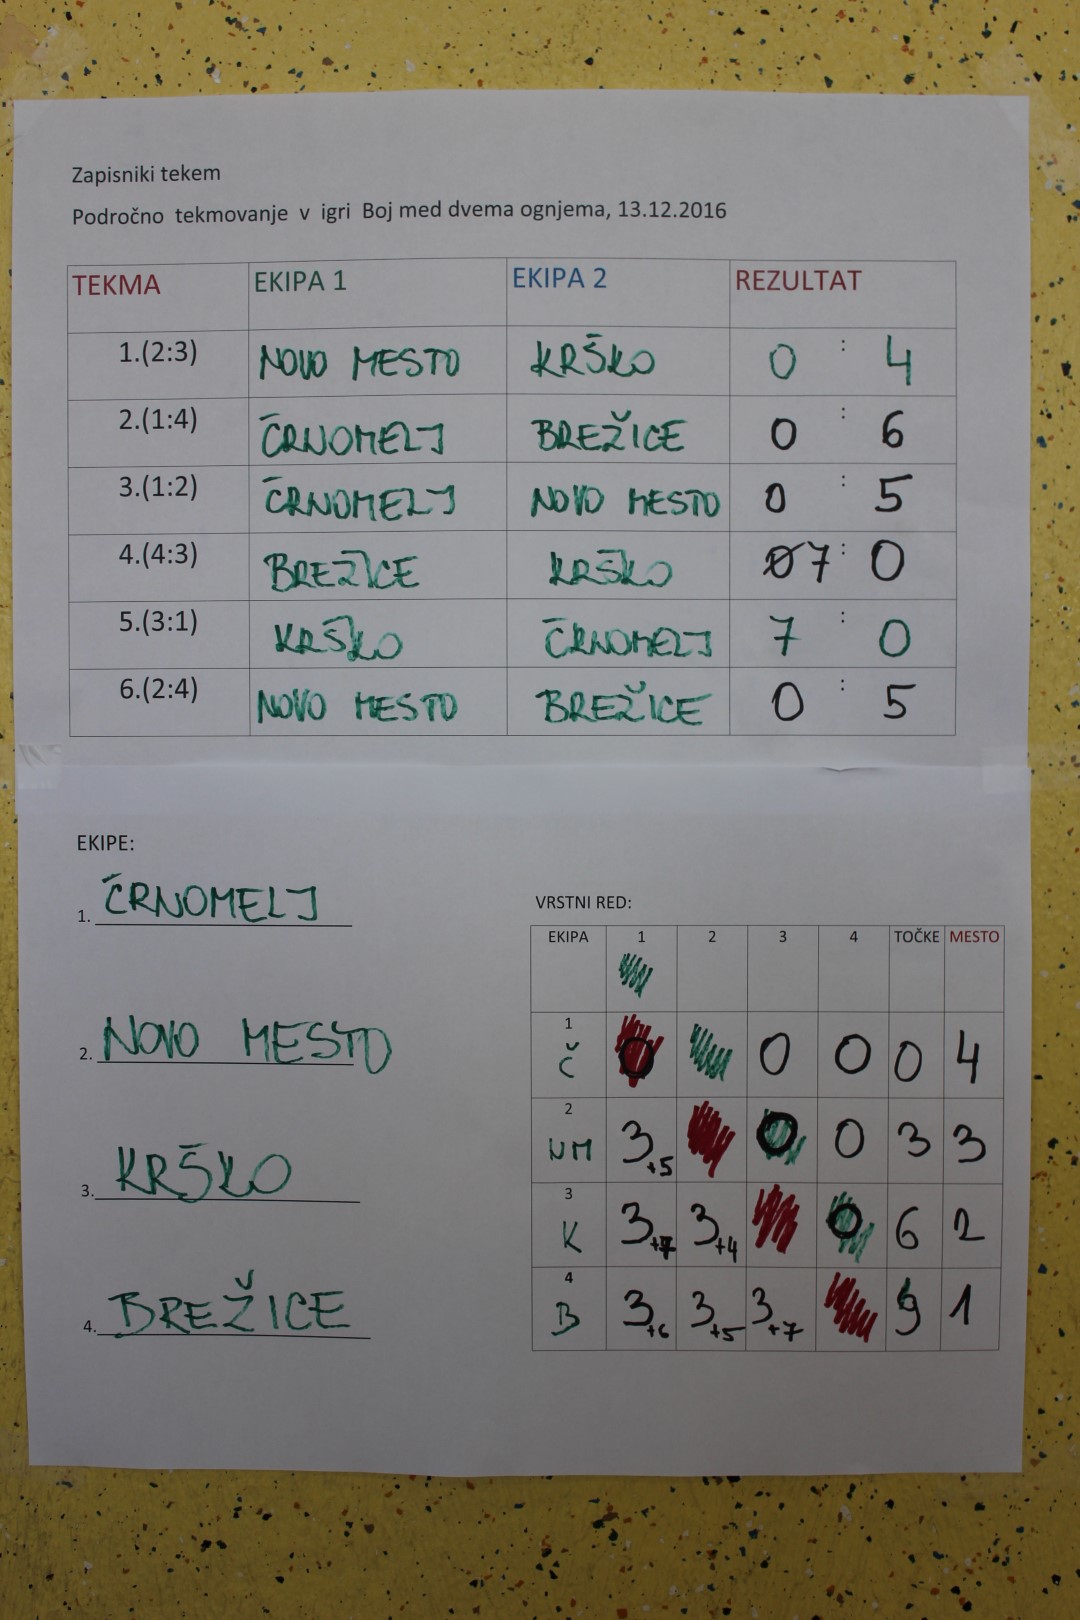 Zapisniki tekem
Področno tekmovanje v igri Boj med dvema ognjema, 13.12.2016
TEKMA EKIPA 1 EKIPA 2 REZULTAT
1.(2:3) NOVO MESTO KRŠKO 0 : 4
2.(1:4) ČRNOMELJ BREŽICE 0 : 6
3.(1:2) ČRNOMELJ NOVO MESTO 0 : 5
4.(4:3) BREŽICE KRŠKO 7 : 0
5.(3:1) KRŠKO ČRNOMELJ 7 : 0
6.(2:4) NOVO MESTO BREŽICE 0 : 5
EKIPE:
1. ČRNOMELJ
2. NOVO MESTO
3. KRŠKO
4. BREŽICE
VRSTNI RED:
EKIPA 1 2 3 4 TOČKE MESTO
1
Č 0 0 0 0 4
2
NM 3+5 0 0 3 3
3
K 3+7 3+4 0 6 2
4
B 3+6 3+5 3+7 9 1